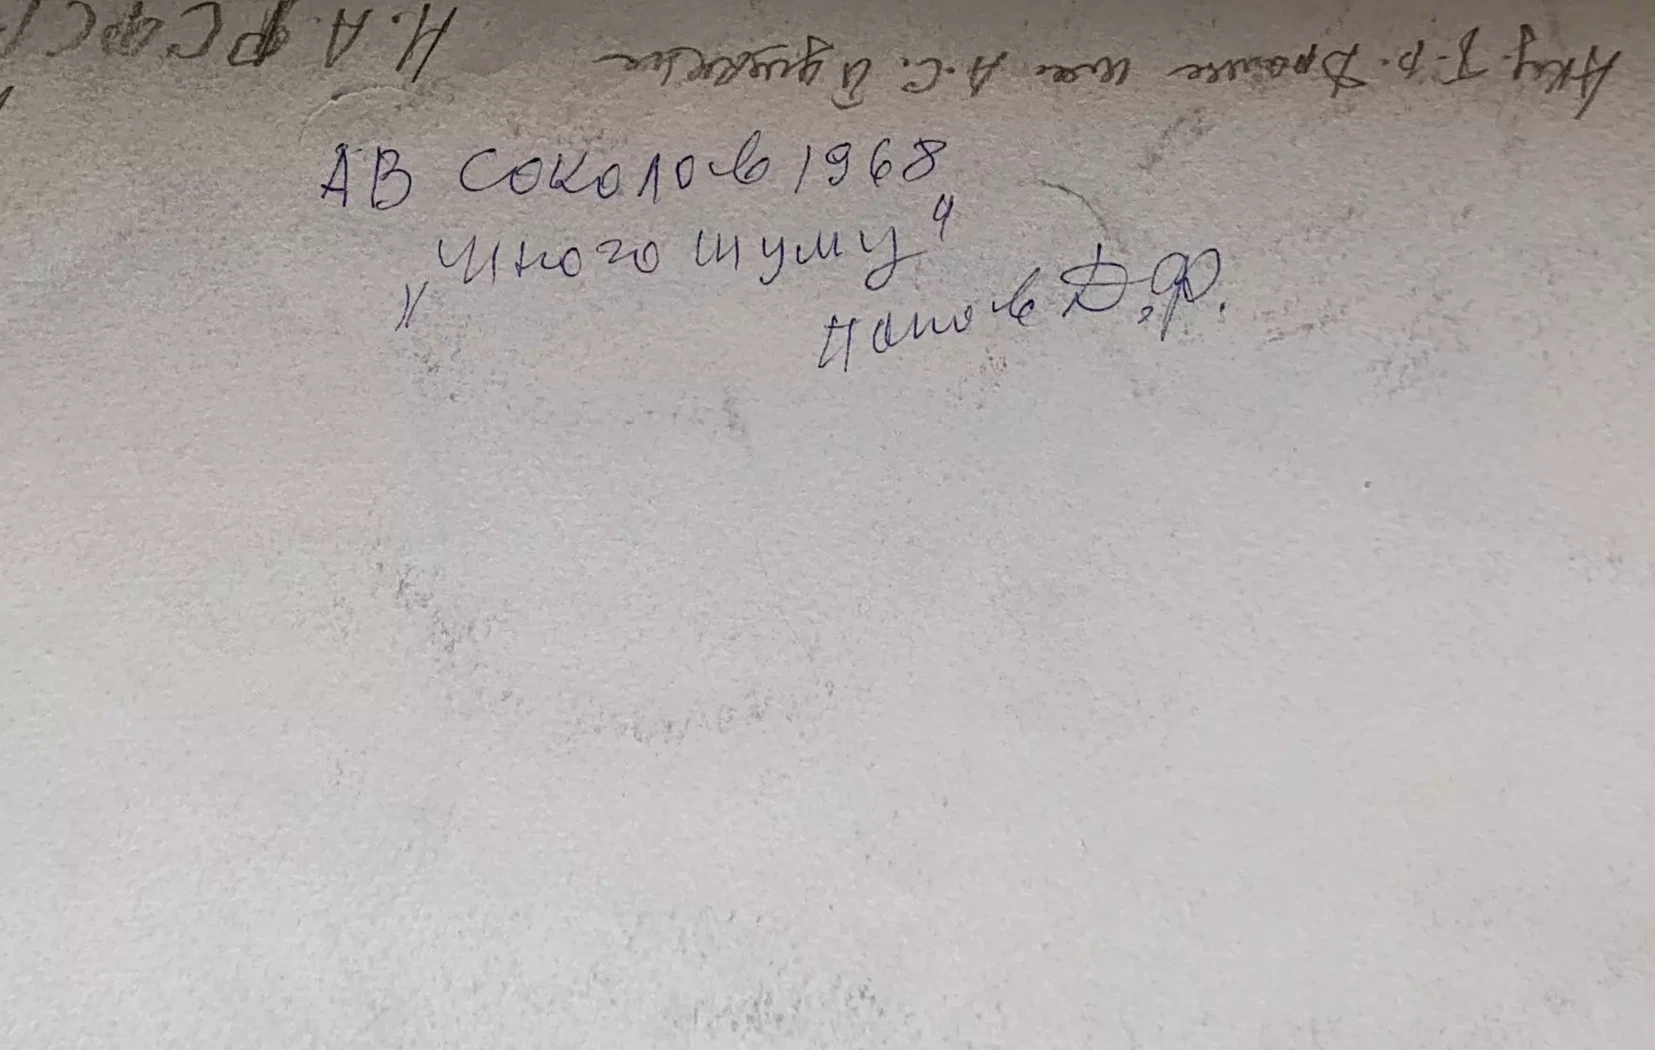 Н.А. РСФСР
Акад. Т-р. Драмы им. А.С. Пушкина
АВ Соколов 1968
„Много шуму"
Попов Д.Ф.